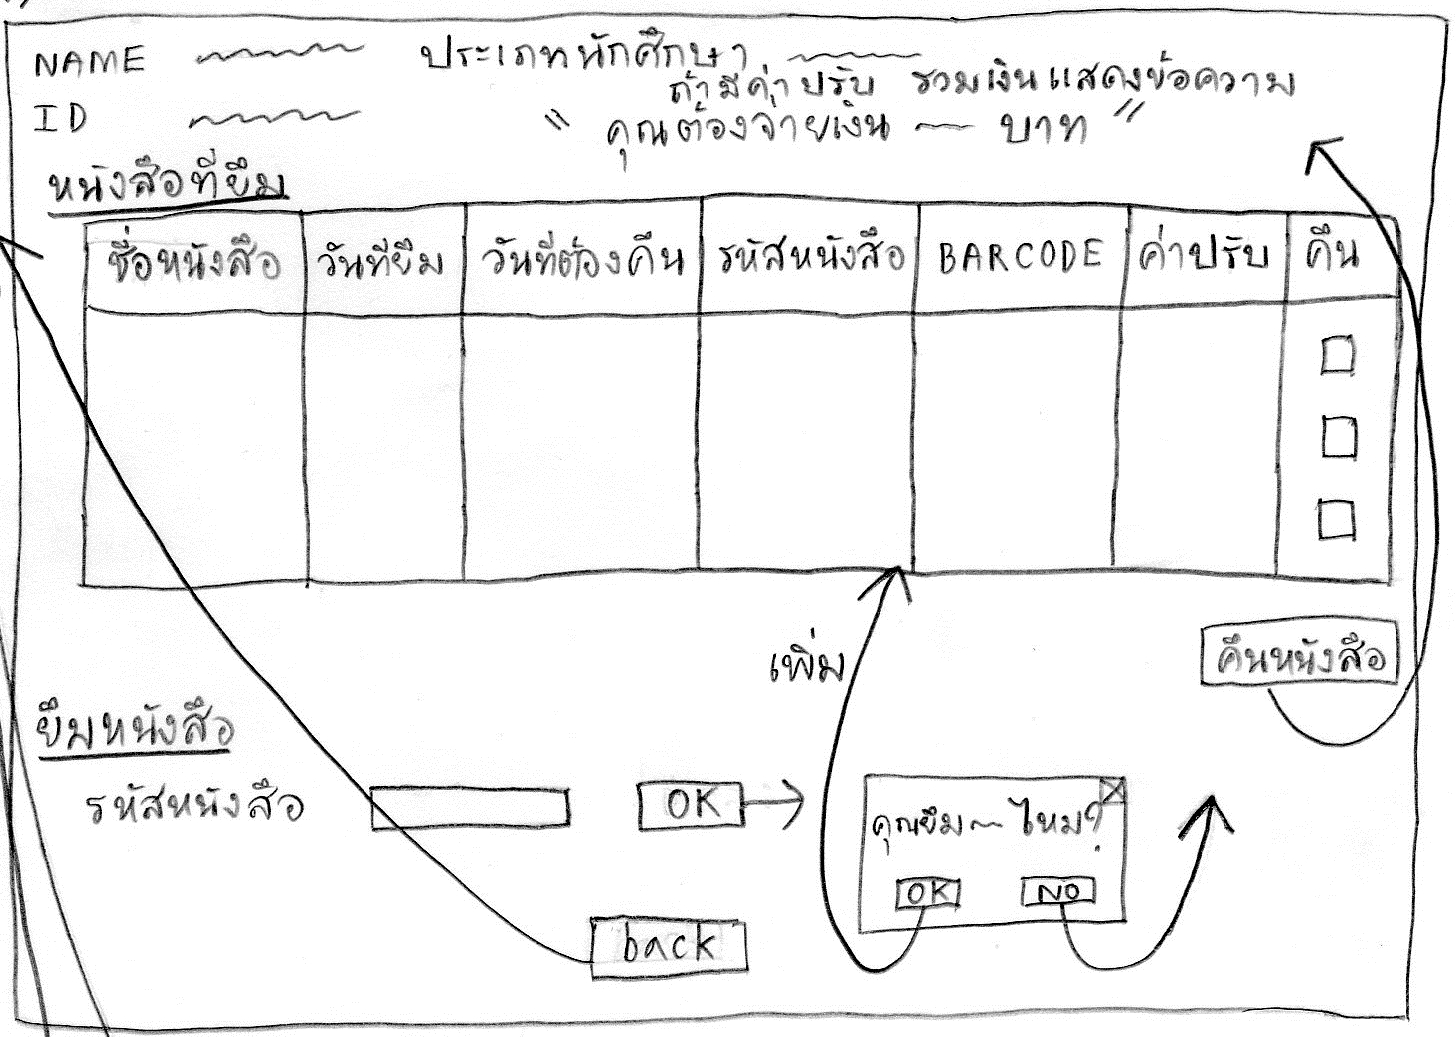 NAME ประเภทนักศึกษา
ถ้ามีค่าปรับ รวมเงินแสดงข้อความ
ID " คุณต้องจ่ายเงิน ~ บาท "
หนังสือที่ยืม
ชื่อหนังสือ วันที่ยืม วันที่ต้องคืน รหัสหนังสือ BARCODE ค่าปรับ คืน
เพิ่ม
คืนหนังสือ
ยืมหนังสือ
รหัสหนังสือ OK
คุณยืม ~ ไหม?
OK NO
back